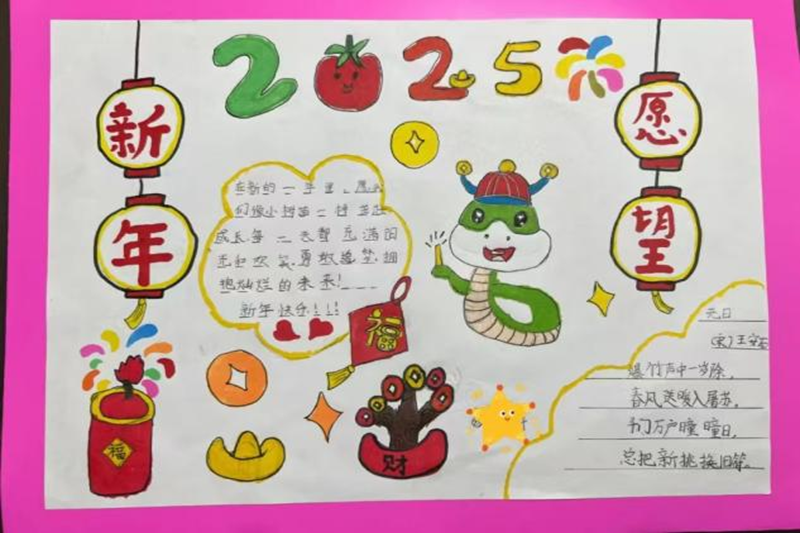 2025
新年
愿望
在新的一年里，愿我
们像小树苗一样茁壮
成长每一天都充满阳
光和欢笑,勇敢追梦,拥
抱灿烂的未来!
新年快乐!!!
福
福
财
元日
(宋)王安石
爆竹声中一岁除,
春风送暖入屠苏.
千门万户瞳瞳日,
总把新挑换旧符.